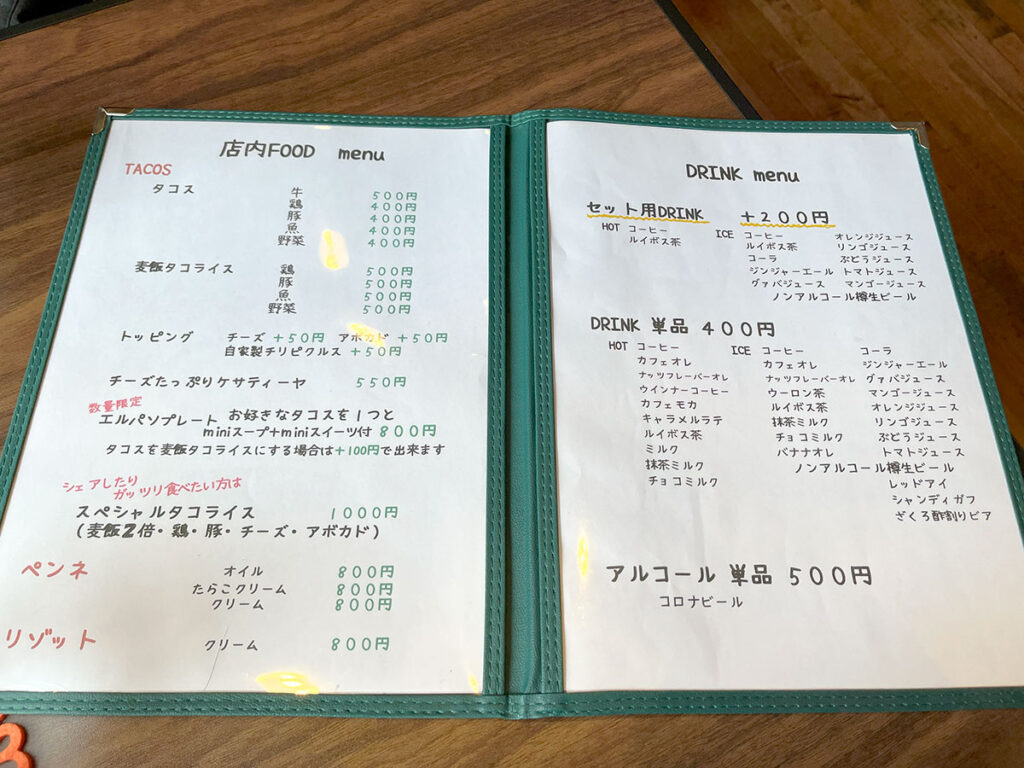 店内FOOD menu
TACOS
タコス 牛 500円
鶏 400円
豚 400円
魚 400円
野菜 400円
麦飯タコライス 鶏 500円
豚 500円
魚 500円
野菜 500円
トッピング チーズ +50円 アボカド +50円
自家製チリピクルス +50円
チーズたっぷりケサディーヤ 550円
数量限定
エルパソプレート お好きなタコスを1つと
miniスープ+miniスイーツ付 800円
タコスを麦飯タコライスにする場合は+100円で出来ます
シェアしたり
ガッツリ食べたい方は
スペシャルタコライス 1000円
(麦飯2倍・鶏・豚・チーズ・アボカド)
ペンネ オイル 800円
たらこクリーム 800円
クリーム 800円
リゾット クリーム 800円
DRINK menu
セット用DRINK +200円
HOT コーヒー
ルイボス茶
ICE コーヒー オレンジジュース
ルイボス茶 リンゴジュース
コーラ ぶどうジュース
ジンジャーエール トマトジュース
グァバジュース マンゴージュース
ノンアルコール樽生ビール
DRINK 単品 400円
HOT コーヒー
カフェオレ
ナッツフレーバーオレ
ウインナーコーヒー
カフェモカ
キャラメルラテ
ルイボス茶
ミルク
抹茶ミルク
チョコミルク
ICE コーヒー コーラ
カフェオレ ジンジャーエール
ナッツフレーバーオレ グァバジュース
ウーロン茶 マンゴージュース
ルイボス茶 オレンジジュース
抹茶ミルク リンゴジュース
チョコミルク ぶどうジュース
バナナオレ トマトジュース
ノンアルコール樽生ビール
レッドアイ
シャンディガフ
ざくろ酢割りビア
アルコール 単品 500円
コロナビール